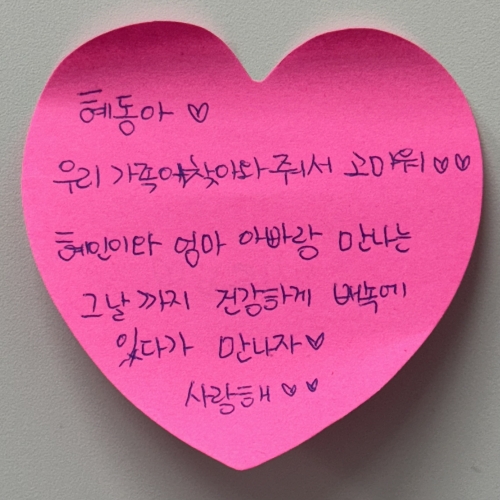 혜동아 ♡
우리 가족에 찾아와 주어서 고마워 ♡♡
혜인이랑 엄마 아빠랑 만나는
그날 까지 건강하게 뱃속에
있다가 만나자 ♡
사랑해 ♡♡